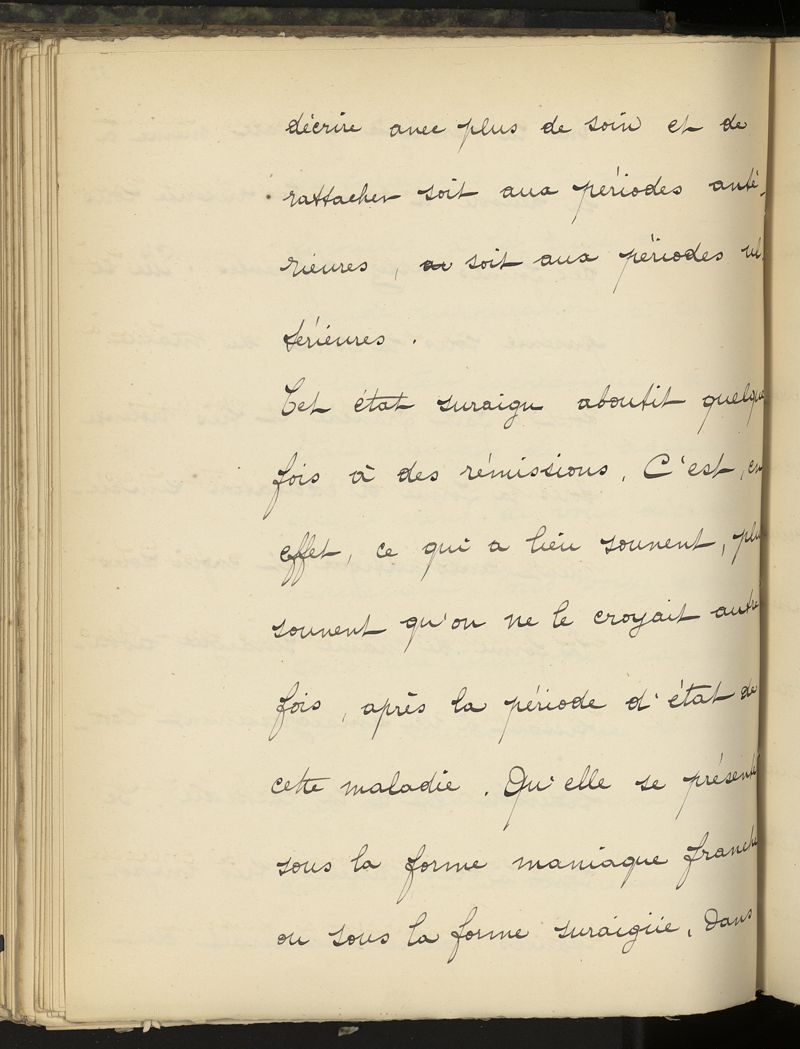 décrire avec plus de soin et de
rattacher soit aux périodes anté-
rieures, au soit aux périodes ul-
térieures.
Cet état suraigu aboutit quelque
fois à des rémissions. C'est, en
effet, ce qui a lieu souvent, plus
souvent qu'on ne le croyait autre
fois, après la période d'état de
cette maladie. Qu'elle se présente
sous la forme maniaque franche
ou sous la forme suraigüe, dans